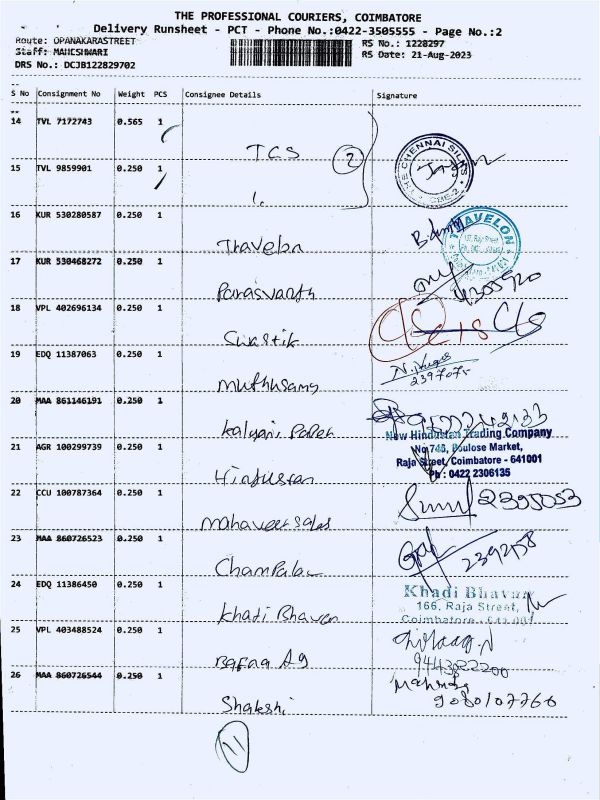 THE PROFESSIONAL COURIERS, COIMBATORE
Delivery Runsheet - PCT - Phone No.:0422-3505555 - Page No.:2
Route: OPANAKARASTREET RS No.: 1228297
Staff: MAHESHWARI RS Date: 21-Aug-2023
DRS No.: DCJB122829702
S No Consignment No Weight PCS Consignee Details Signature
14 TVL 7172743 0.565 1
TCS 2
THE CHENNAI SILKS
15 TVL 9859901 0.250 1
16 KUR 530280587 0.250 1
Travelon
TRAVELON
17 KUR 530468272 0.250 1
Parasvanth
18 VPL 402696134 0.250 1
Swastik
C/S
19 EDQ 11387063 0.250 1
muthusamy
2397075
20 MAA 861146191 0.250 1
kalyani Paper
New Hindustan Trading Company
21 AGR 100299739 0.250 1
No 745, Poulose Market,
Raja Street, Coimbatore - 641001
Ph : 0422 2306135
Hindustan
22 CCU 100787364 0.250 1
mahaveer sales
2395053
23 MAA 860726523 0.250 1
2392158
24 EDQ 11386450 0.250 1
Khadi Bhavan
166, Raja Street,
Coimbatore - 641 001
Khadi Bhavan
25 VPL 403488524 0.250 1
9443822200
26 MAA 860726544 0.250 1
Shakshi
9080107766
11